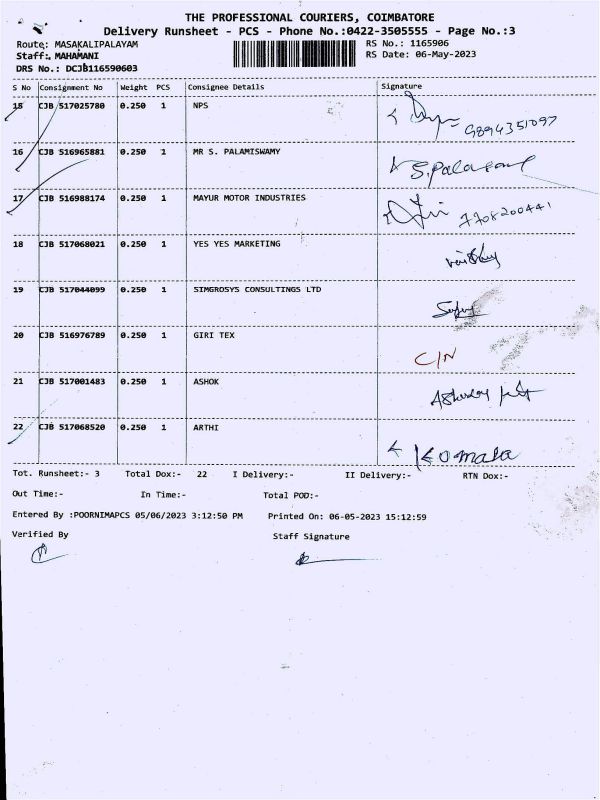 THE PROFESSIONAL COURIERS, COIMBATORE
Delivery Runsheet - PCS - Phone No.:0422-3505555 - Page No.:3
Route: MASAKALIPALAYAM RS No.: 1165906
Staff: MAHAMANI RS Date: 06-May-2023
DRS No.: DCJB116590603
S No Consignment No Weight PCS Consignee Details Signature
15 CJB 517025780 0.250 1 NPS 9894351097
16 CJB 516965881 0.250 1 MR S. PALAMISWAMY
17 CJB 516988174 0.250 1 MAYUR MOTOR INDUSTRIES 7708200441
18 CJB 517068021 0.250 1 YES YES MARKETING
19 CJB 517044099 0.250 1 SIMGROSYS CONSULTINGS LTD
20 CJB 516976789 0.250 1 GIRI TEX C/N
21 CJB 517001483 0.250 1 ASHOK
22 CJB 517068520 0.250 1 ARTHI Komala
Tot. Runsheet:- 3 Total Dox:- 22 I Delivery:- II Delivery:- RTN Dox:-
Out Time:- In Time:- Total POD:-
Entered By :POORNIMAPCS 05/06/2023 3:12:50 PM Printed On: 06-05-2023 15:12:59
Verified By Staff Signature